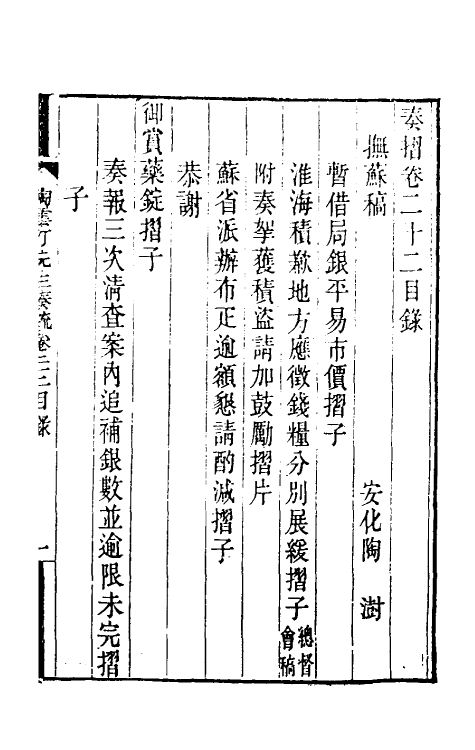 奏摺卷二十二目錄
撫蘇稿　安化陶　澍
暫借局銀平易市價摺子
淮海積歉地方應徵錢糧分別展緩摺子總督會稿
附奏拏獲積盜請加鼓勵摺片
蘇省派辦布疋逾額懇請酌減摺子
恭謝
御賞藥錠摺子
奏報三次清查案內追補銀數並逾限未完摺
子
陶雲汀先生奏疏卷二十二目錄　一